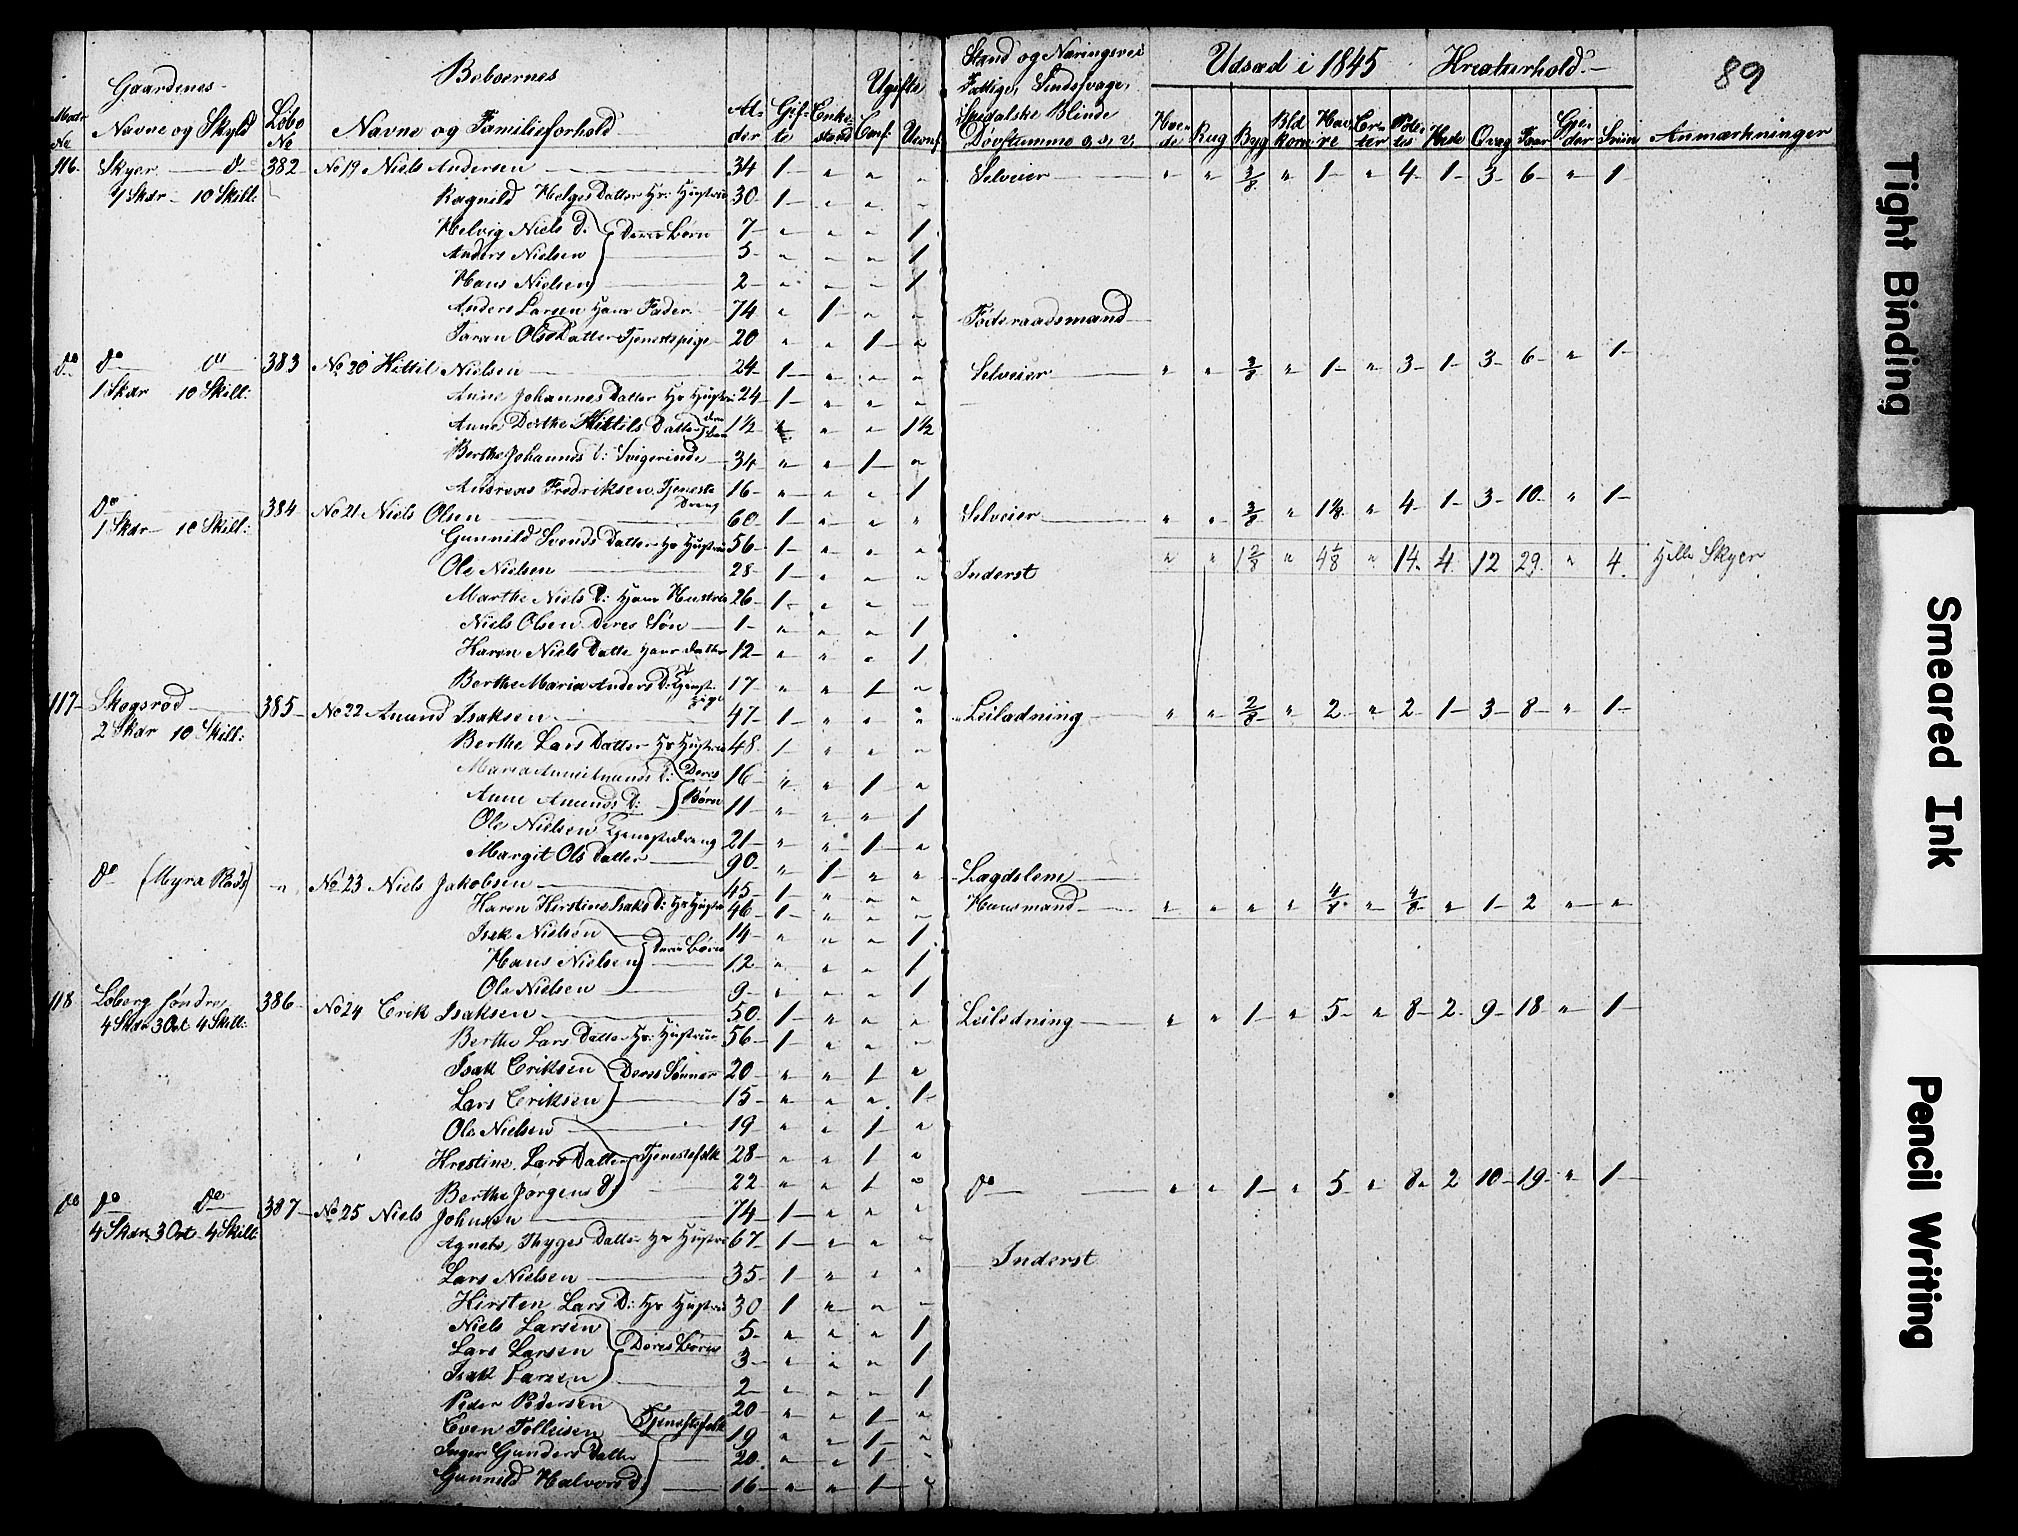 89
Gaardenes Beboernes Ugifte Stand og Næringsvei Udsæd i 1845 Kreaturhold
Fattige, Sindssvage,
Matr No Navne og Skyld Løbe No Navne og Familieforhold Alder Gifte Enkestand Conf. Uconf. Spedalske Blinde Døvstumme o, s, v, Hvede Rug Byg Bld korn Havre Erter Potetes Heste Qvæg Faar Gjeder Sviin Anmærkninger
116 Skyer do 382 No 19 Niels Andersen 34 1 " " " Selveier " " 3/8 " 1 " 4 1 3 6 " 1
1 Skdr 10 Skill: Ragnild Helges Datter Hs: Hustrue 30 1 " " "
Helvig Niels D: Deres Børn 7 " " " 1
Anders Nielsen 5 " " " 1
Hans Nielsen 2 " " " 1
Anders Larsen Hans Fader 74 " 1 " " Föderaadsmand
Joran Ols Datter Tjenestepige 20 " " 1 "
do do do 383 No 20 Kittil Nielsen 24 1 " " " Selveier " " 3/8 " 1 " 3 1 3 6 " 1
1 Skdr 10 Skill: Anne Johannes Datter Hs Hustru 24 1 " " "
Anne Dorthe Kittils Datter 1½ " " 1½
Berthe Johannes D: Svigerinde 34 " " 1 "
Andreas Fredriksen Tjeneste Dreng 16 " " " 1
do 384 No 21 Niels Olsen 60 1 " " " Selveier " " 3/8 " " 4 1 3 10 " 1
1 Skdr 10 Skill: Gunnild Svends Datter Hs Hustrue 56 1 " " "
Ole Nielsen 28 1 " " " Inderst " " " " 14 4 12 29 " 4 Hele Skyer
Marthe Niels D: Hans Hustrue 26 1 " "
Niels Olsen Deres Søn 1 " " " 1
Karen Niels Datte Hans datter 12 " " " 1
Berthe Maria Anders D: Tjenstepige 17 " " 1 "
117 Skogsrød 385 No 22 Amund Isaksen 47 1 " " " Leilædning " " 2/8 " 2 " 2 1 3 8 " 1
2 Skdr 10 Skill: Berthe Lars Datter Hs Hustrue 48 1 " " "
Maria Amunds D: Deres 16 " " 1 "
Anne Amunds D: Børn 11 " " " 1
Ole Nielsen Tjenestedreng 21 " " 1 "
Margit Ols Datter 90 " 1 " " Lægdslem
do (Myra Plads) " No 23 Niels Jakobsen 45 1 " " " Huusmand " " " " " 4/8 " 1 2 " "
Karen Kirstine Isaks D: Hs Hustru 46 1 " " "
Isak Nielsen Deres Børn 14 " " " 1
Hans Nielsen 12 " " " 1
Ole Nielsen 9 " " " 1
118 Løberg søndre 386 No 24 Erik Isaksen 50 1 " " " Leilædning " " 1 " 5 " 8 2 9 18 " 1
4 Skdr 3 Ort 4 Skill: Berthe Lars Datter Hs: Hustrue 56 1 " " "
Isak Eriksen Deres Sønner 20 " " 1 "
Lars Eriksen 15 " " " 1
Ole Nielsen 19 " " 1 "
Krestine Lars Datter Tjenestefolk 28 " " 1 "
Berthe Jørgens D: 22 " " 1 "
do do do 387 No 25 Niels Johnsen 74 1 " " " do " " 1 " 5 " 8 2 10 19 " 1
4 Skdr 3 Ort 4 Skill: Agnete Thyges Datter Hs Hustrue 67 1 " " "
Lars Nielsen 35 1 " " " Inderst
Kirsten Lars D: Hs Hustrue 30 1 " " "
Niels Larsen Deres Børn 5 " " " 1
Lars Larsen 3 " " " 1
Isak Larsen 2 " " " 1
Peder Pedersen 20 " " 1 "
Even Tollefsen Tjenestefolk 19 " " 1 "
Inger Gunders Datter 20 " " 1 "
Gunnild Halvors D: 16 " " 1 "
Tight Binding
Smeared Ink
Pencil Writing